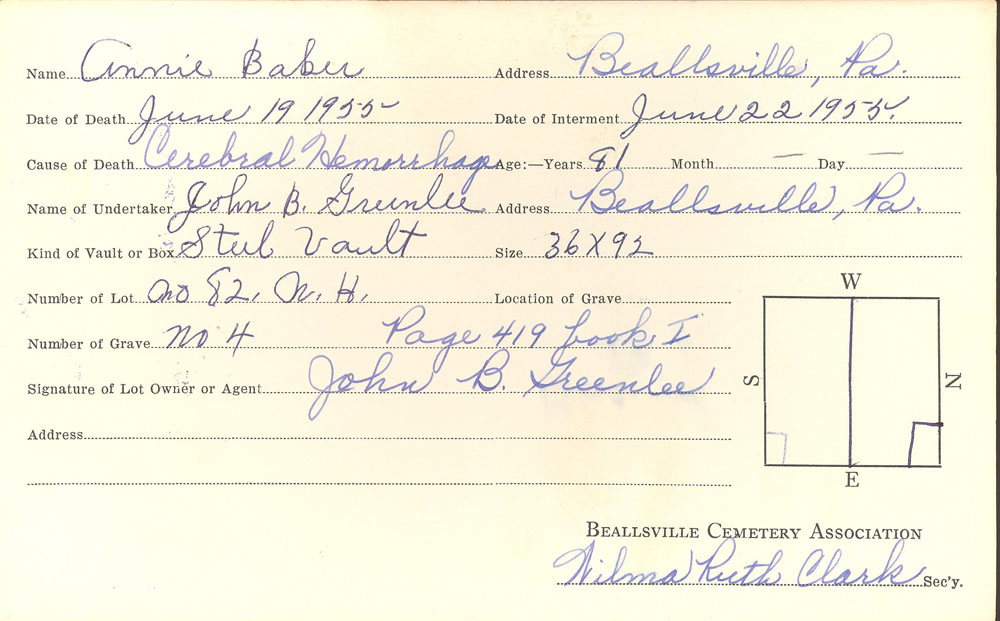 Name Annie Baker Address Beallsville, Pa.
Date of Death June 19 1955 Date of Interment June 22 1955.
Cause of Death Cerebral Hemorrhage Age:—Years 81 Month — Day —
Name of Undertaker John B. Greenlee Address Beallsville, Pa.
Kind of Vault or Box Steel Vault Size 36X92
Number of Lot no 82, N. H. Location of Grave
W
Number of Grave no 4 Page 419 book I
Signature of Lot Owner or Agent John B. Greenlee
S N
Address
E
BEALLSVILLE CEMETERY ASSOCIATION
Wilma Ruth Clark Sec'y.